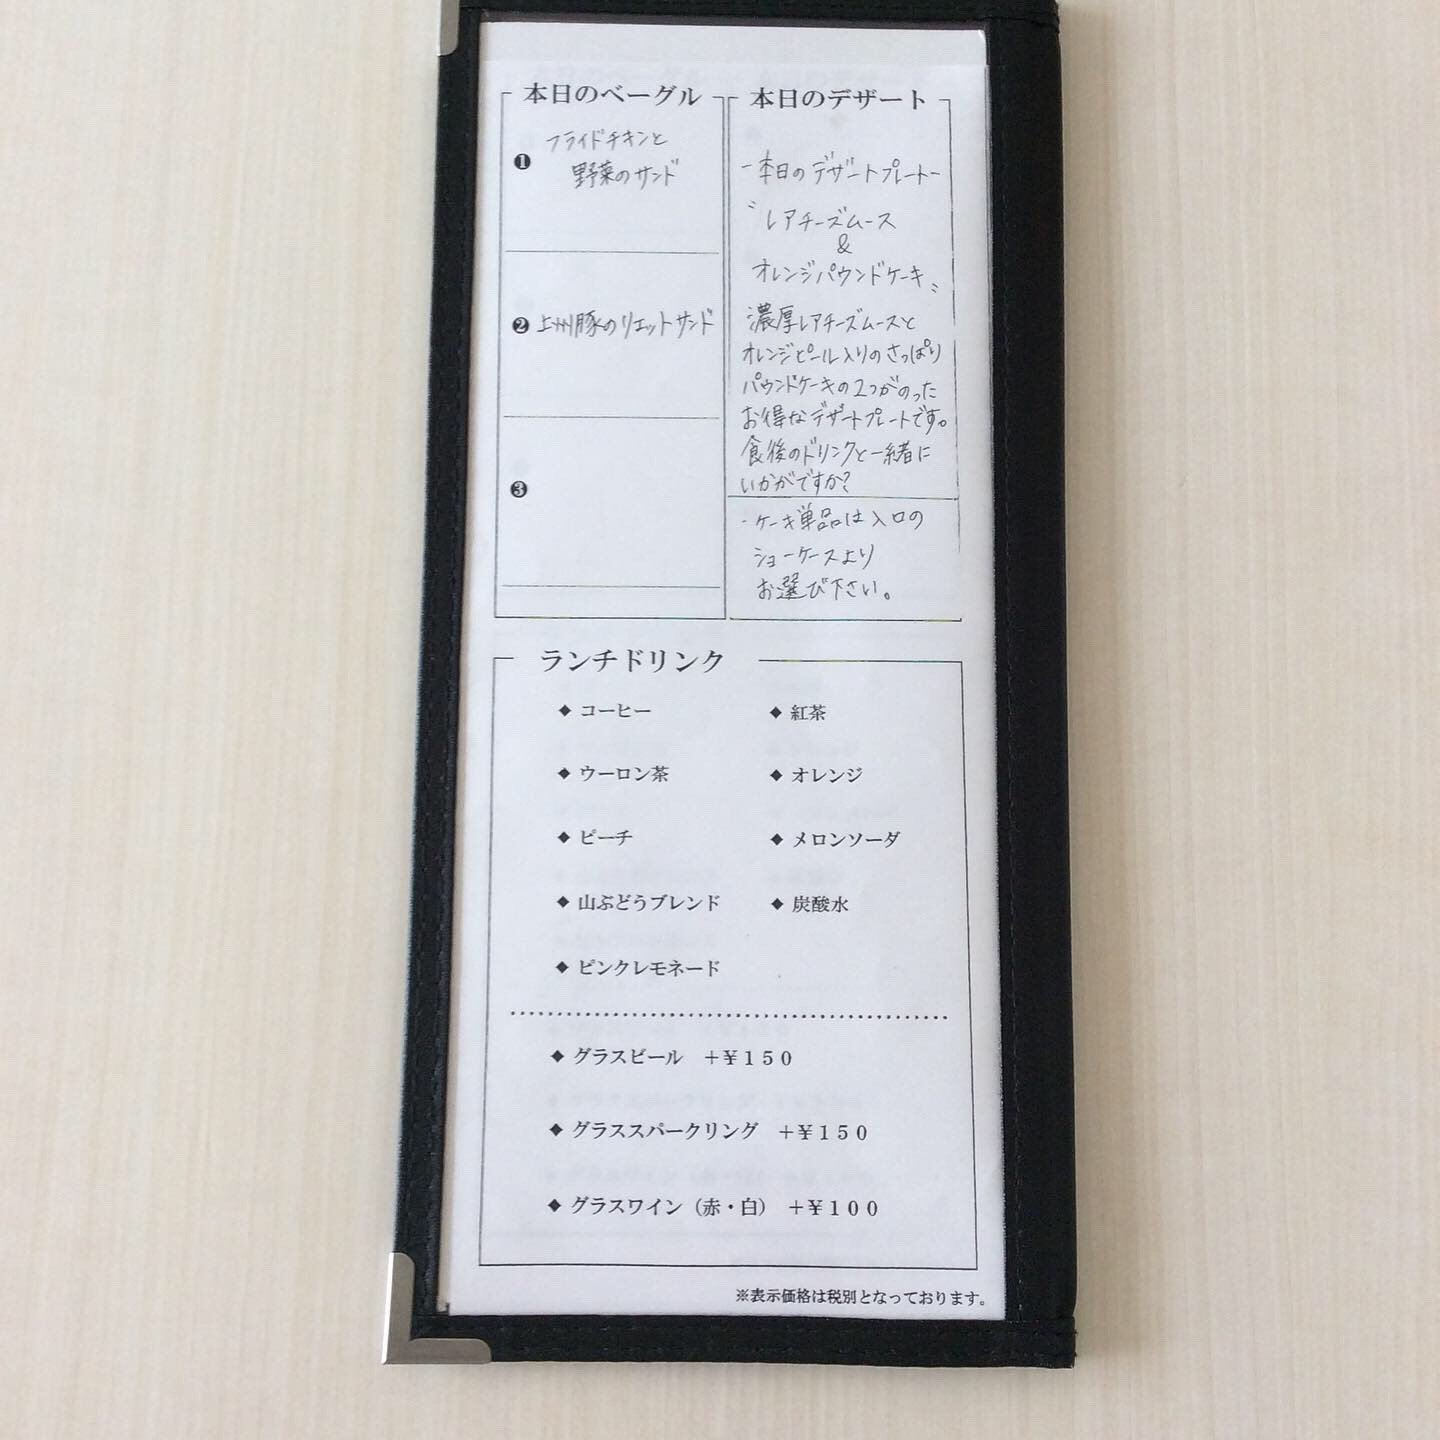 本日のベーグル
❶ フライドチキンと
野菜のサンド
❷ 上州豚のリエットサンド
❸
本日のデザート
-本日のデザートプレート-
〝レアチーズムース
&
オレンジパウンドケーキ〟
濃厚レアチーズムースと
オレンジピール入りのさっぱり
パウンドケーキの2つがのった
お得なデザートプレートです。
食後のドリンクと一緒に
いかがですか?
・ケーキ単品は入口の
ショーケースより
お選び下さい。
ランチドリンク
◆ コーヒー ◆ 紅茶
◆ ウーロン茶 ◆ オレンジ
◆ ピーチ ◆ メロンソーダ
◆ 山ぶどうブレンド ◆ 炭酸水
◆ ピンクレモネード
◆ グラスビール +¥150
◆ グラススパークリング +¥150
◆ グラスワイン(赤・白) +¥100
※表示価格は税別となっております。